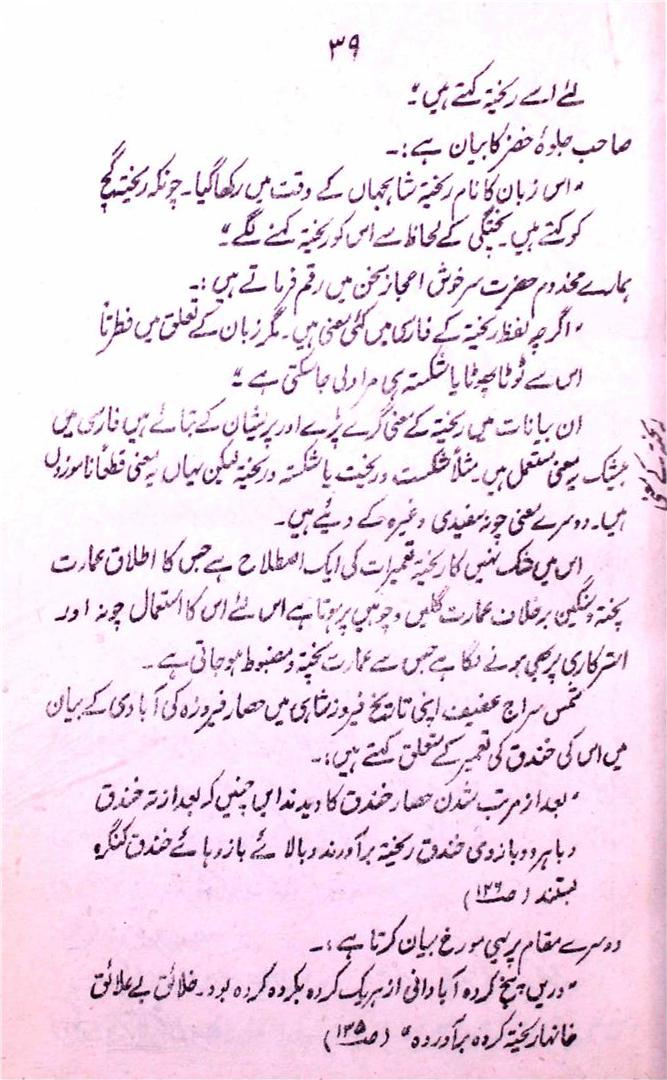 ۳۹
لئے اسے ریختہ کہتے ہیں"۔
صاحب جلوۂ خضر کا بیان ہے:۔
"اس زبان کا نام ریختہ شاہجہاں کے وقت میں رکھا گیا۔ چونکہ ریختہ گچ
کو کہتے ہیں پختگی کے لحاظ سے اس کو ریختہ کہنے لگے"
ہمارے مخدوم حضرت سرخوش اعجاز سخن میں رقم فرماتے ہیں:۔
"اگرچہ لفظ ریختہ کے فارسی میں کئی معنی ہیں۔ مگر زبان کے تعلق میں فطرتاً
اس سے ٹوٹا پھوٹا یا شکستہ ہی مراد لی جا سکتی ہے"
ان بیانات میں ریختہ کے معنی گرے پڑے اور پریشان کے بتائے ہیں فارسی میں
بیشک یہ معنی مستعمل ہیں مثلاً شکست و ریخت یا شکستہ و ریختہ لیکن یہاں یہ معنی قطعاً ناموزوں
ہیں۔ دوسرے معنی چونہ سفیدی وغیرہ کے دیئے ہیں۔
اس میں شک نہیں کہ ریختہ تعمیرات کی ایک اصطلاح ہے جس کا اطلاق عمارت
پختہ و سنگین برخلاف عمارت گلیں و چوبیں پر ہوتا ہے اس لئے اس کا استعمال چونہ اور
استرکاری پر بھی ہونے لگا ہے جس سے عمارت پختہ و مضبوط ہو جاتی ہے۔
شمس سراج عفیف اپنی تاریخ فیروز شاہی میں حصار فیروزہ کی آبادی کے بیان
میں اس کی خندق کی تعمیر کے متعلق کہتے ہیں:۔
"بعد از مرتب شدن حصار خندق کا ویدند ایں چنیں کہ بعد از تہ خندق
و باہر دو بازوی خندق ریختہ برآوردند و بالائے بازوہائے خندق کنگرہ
بستند (ص۱۲۶)
دوسرے مقام پر یہی مورخ بیان کرتا ہے:۔
"دریں پنج کردہ آبادانی از ہریک کردہ بکردہ کردہ بود۔ خلائق بے علائق
خانہا ریختہ کردہ برآوردہ" (ص۱۳۵)